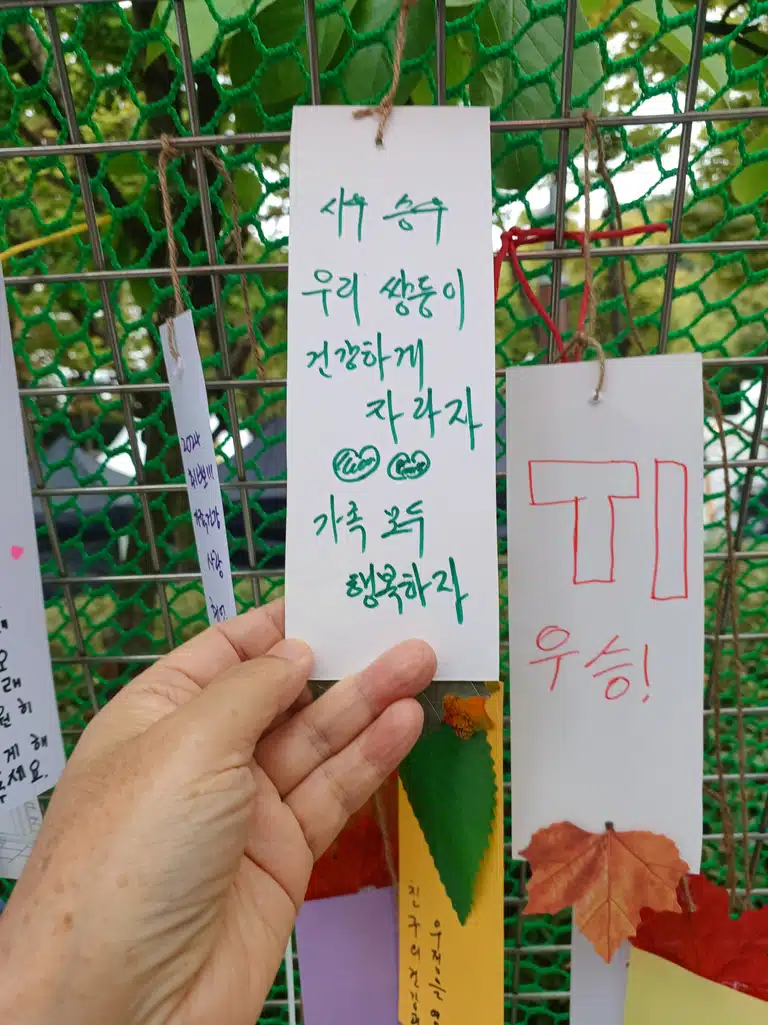 시우 승우
우리 쌍둥이
건강하게
자라자
가족 모두
행복하자
T1
우승!
2024
가족건강
사랑
게 해
주세요.
친구의 건강
우정은